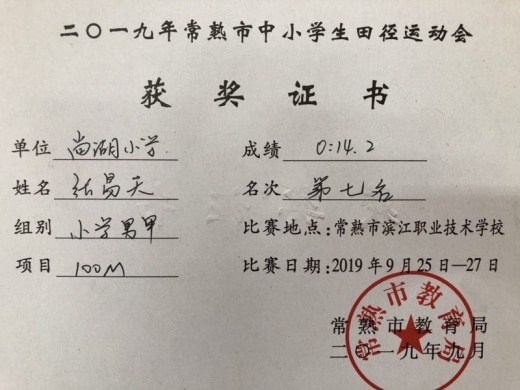 二〇一九年常熟市中小学生田径运动会
获奖证书
单位 尚湖小学 成绩 0:14.2
姓名 张易天 名次 第七名
组别 小学男甲 比赛地点:常熟市滨江职业技术学校
项目 100M 比赛日期:2019年9月25日—27日
常熟市教育局
常熟市教育局
二〇一九年九月